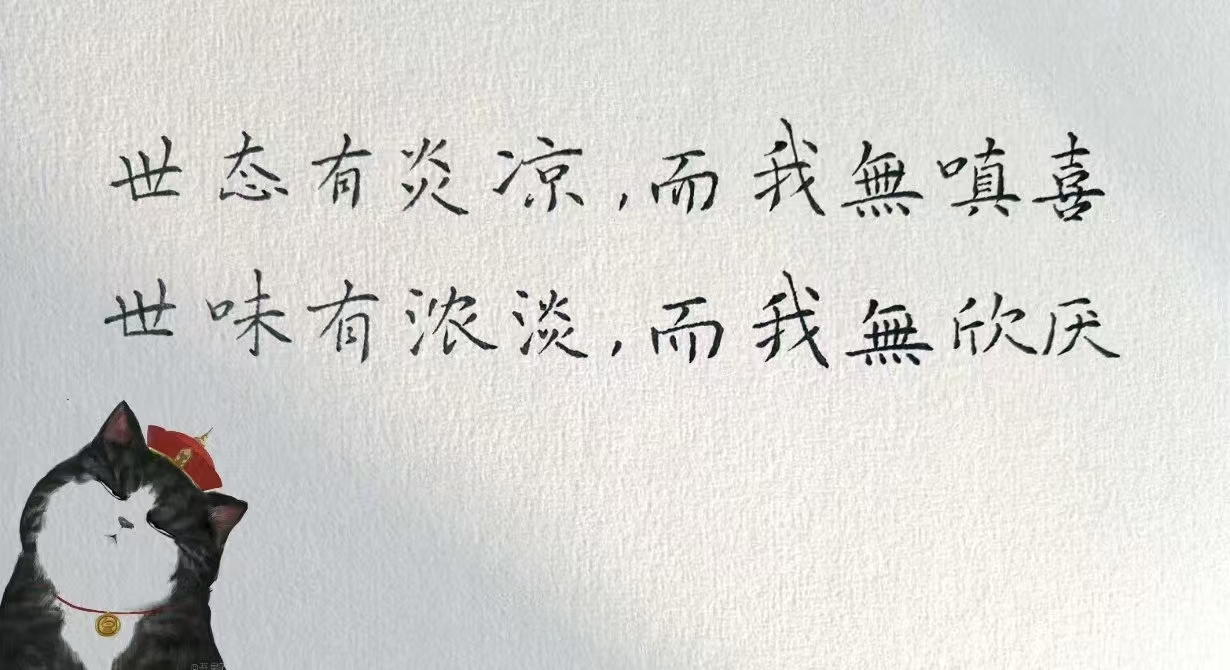 世态有炎凉,而我無嗔喜
世味有浓淡,而我無欣厌